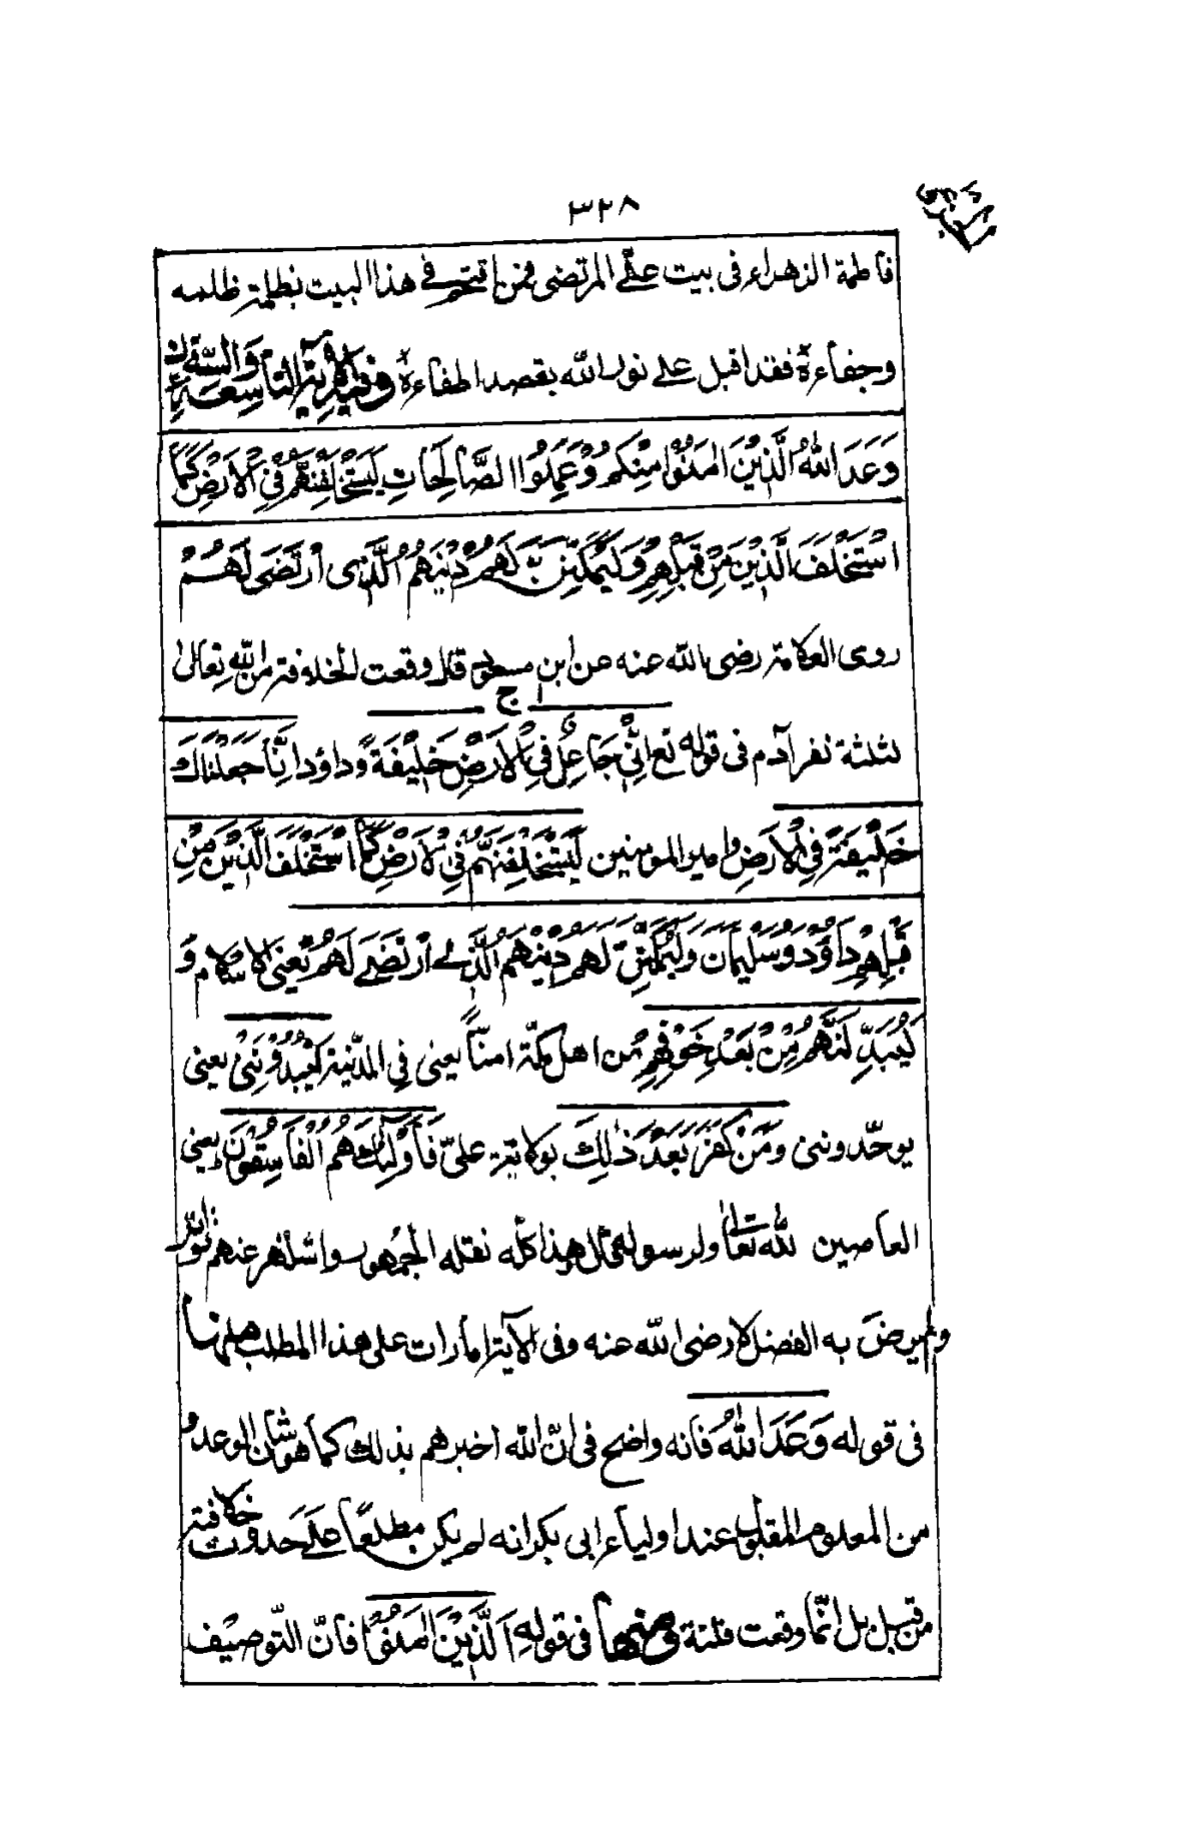 ٣٢٨
فاطمة الزهراء فى بيت علىّ المرتضى فمن اقتحم فى هذا البيت بظلمة ظلمه
وجفاءه فقد اقبل على نور الله بقصد اطفاءه ومنها الآية التاسعة والستون
وَعَدَ اللهُ الَّذِيْنَ اٰمَنُوْا مِنْكُمْ وَعَمِلُوا الصَّالِحَاتِ لَيَسْتَخْلِفَنَّهُمْ فِى الْاَرْضِ كَمَا
اسْتَخْلَفَ الَّذِيْنَ مِنْ قَبْلِهِمْ وَلَيُمَكِّنَنَّ لَهُمْ دِيْنَهُمُ الَّذِى ارْتَضَى لَهُمْ
روى العلامة رضى الله عنه عن ابن مسعود قال وقعت الخلافة من الله تعالى
لثلثة نفر آدم فى قوله تع اِنِّىْ جَاعِلٌ فِى الْاَرْضِ خَلِيْفَةً وداؤد اِنَّا جَعَلْنَاكَ
خَلِيْفَةً فِى الْاَرْضِ وامير المومنين لَيَسْتَخْلِفَنَّهُمْ فِى الْاَرْضِ كَمَا اسْتَخْلَفَ الَّذِيْنَ مِنْ
قَبْلِهِمْ دَاؤُدَ وَسُلَيْمَانَ وَلَيُمَكِّنَنَّ لَهُمْ دِيْنَهُمُ الَّذِى ارْتَضَى لَهُمْ يعنى الاسلام وَ
لَيُبَدِّلَنَّهُمْ مِنْ بَعْدِ خَوْفِهِمْ من اهل مكّة امناً يعنى فى المدينة يَعْبُدُوْنَنِىْ يعنى
يوحّدوننى وَمَنْ كَفَرَ بَعْدَ ذٰلِكَ بولاية علىّ فَاُولٰئِكَ هُمُ الْفَاسِقُوْنَ يعنى
العاصين لله تعالى ولرسوله هذا كلّه نقله الجمهور واشتهر عنهم تواتر
به الفضل لا رضى الله عنه وفى الآية امارات على هذا المطلب منها
فى قوله وَعَدَ اللهُ فانه واضح فى انّ الله اخبرهم بذلك كما هو شان الوعد و
من المعلوم المقبول عند اولياء ابى بكر انه لم يكن مطلعًا على حدوث خلافته
من قبل بل انّما وقعت فلتة ومنها فى قوله اَلَّذِيْنَ اٰمَنُوْا فانّ التّوصيف